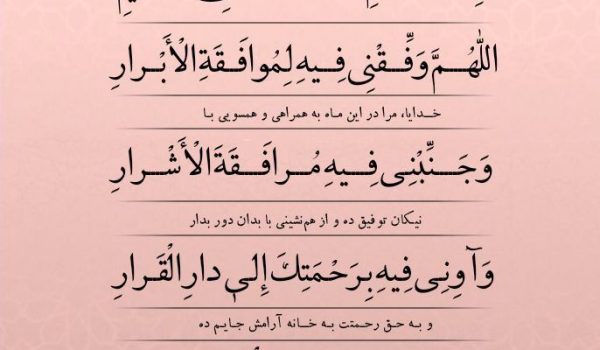 اللّٰهُمَّ وَفِّقْنِی فِیهِ لِمُوافَقَةِ الْأَبْرارِ
خدایا، مرا در این ماه به همراهی و همسویی با
وَجَنِّبْنِی فِیهِ مُرافَقَةَ الْأَشْرارِ
نیکان توفیق ده و از هم‌نشینی با بدان دور بدار
وَآوِنِی فِیهِ بِرَحْمَتِكَ إِلیٰ دارِ الْقَرارِ
و به حق رحمتت به خانه آرامش جایم ده